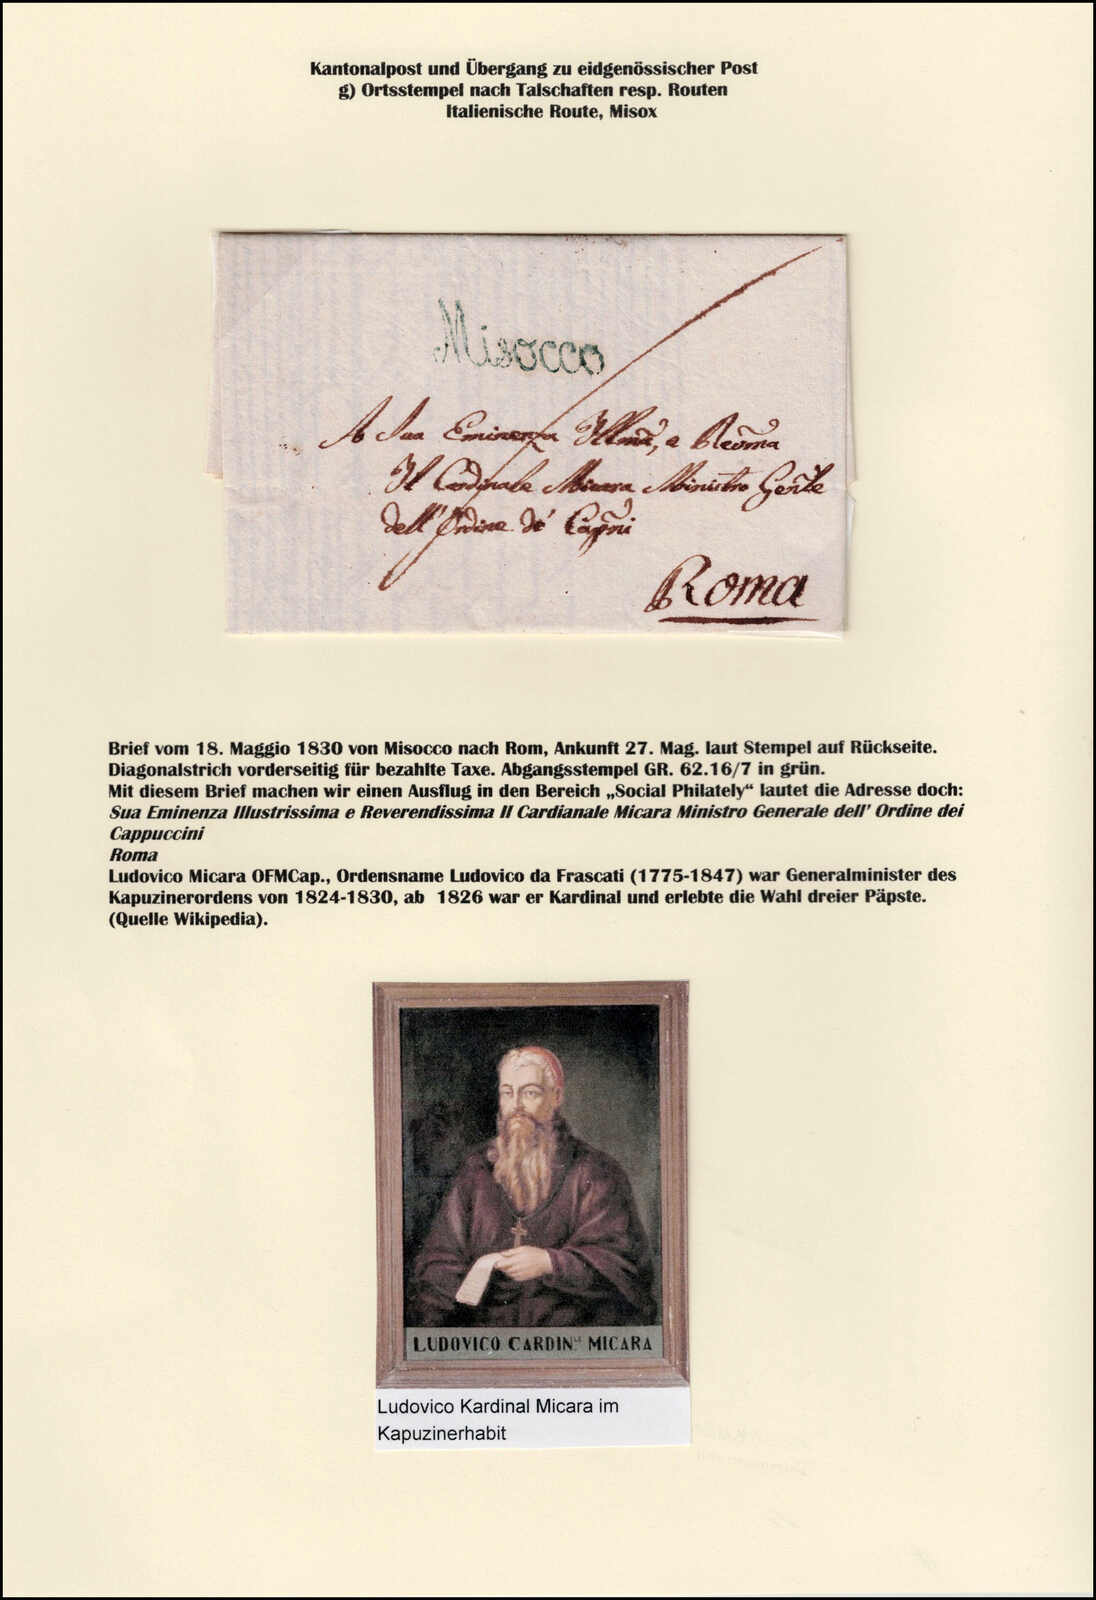 Kantonalpost und Übergang zu eidgenössischer Post
g) Ortsstempel nach Talschaften resp. Routen
Italienische Route, Misox
Misocco
A Sua Eminenza Illma, e Revma
Il Cardinale Micara Ministro Genle
dell' Ordine de' Capni
Roma
Brief vom 18. Maggio 1830 von Misocco nach Rom, Ankunft 27. Mag. laut Stempel auf Rückseite.
Diagonalstrich vorderseitig für bezahlte Taxe. Abgangsstempel GR. 62.16/7 in grün.
Mit diesem Brief machen wir einen Ausflug in den Bereich „Social Philately“ lautet die Adresse doch:
Sua Eminenza Illustrissima e Reverendissima Il Cardianale Micara Ministro Generale dell' Ordine dei
Cappuccini
Roma
Ludovico Micara OFMCap., Ordensname Ludovico da Frascati (1775-1847) war Generalminister des
Kapuzinerordens von 1824-1830, ab 1826 war er Kardinal und erlebte die Wahl dreier Päpste.
(Quelle Wikipedia).
LUDOVICO CARDIN. MICARA
Ludovico Kardinal Micara im
Kapuzinerhabit